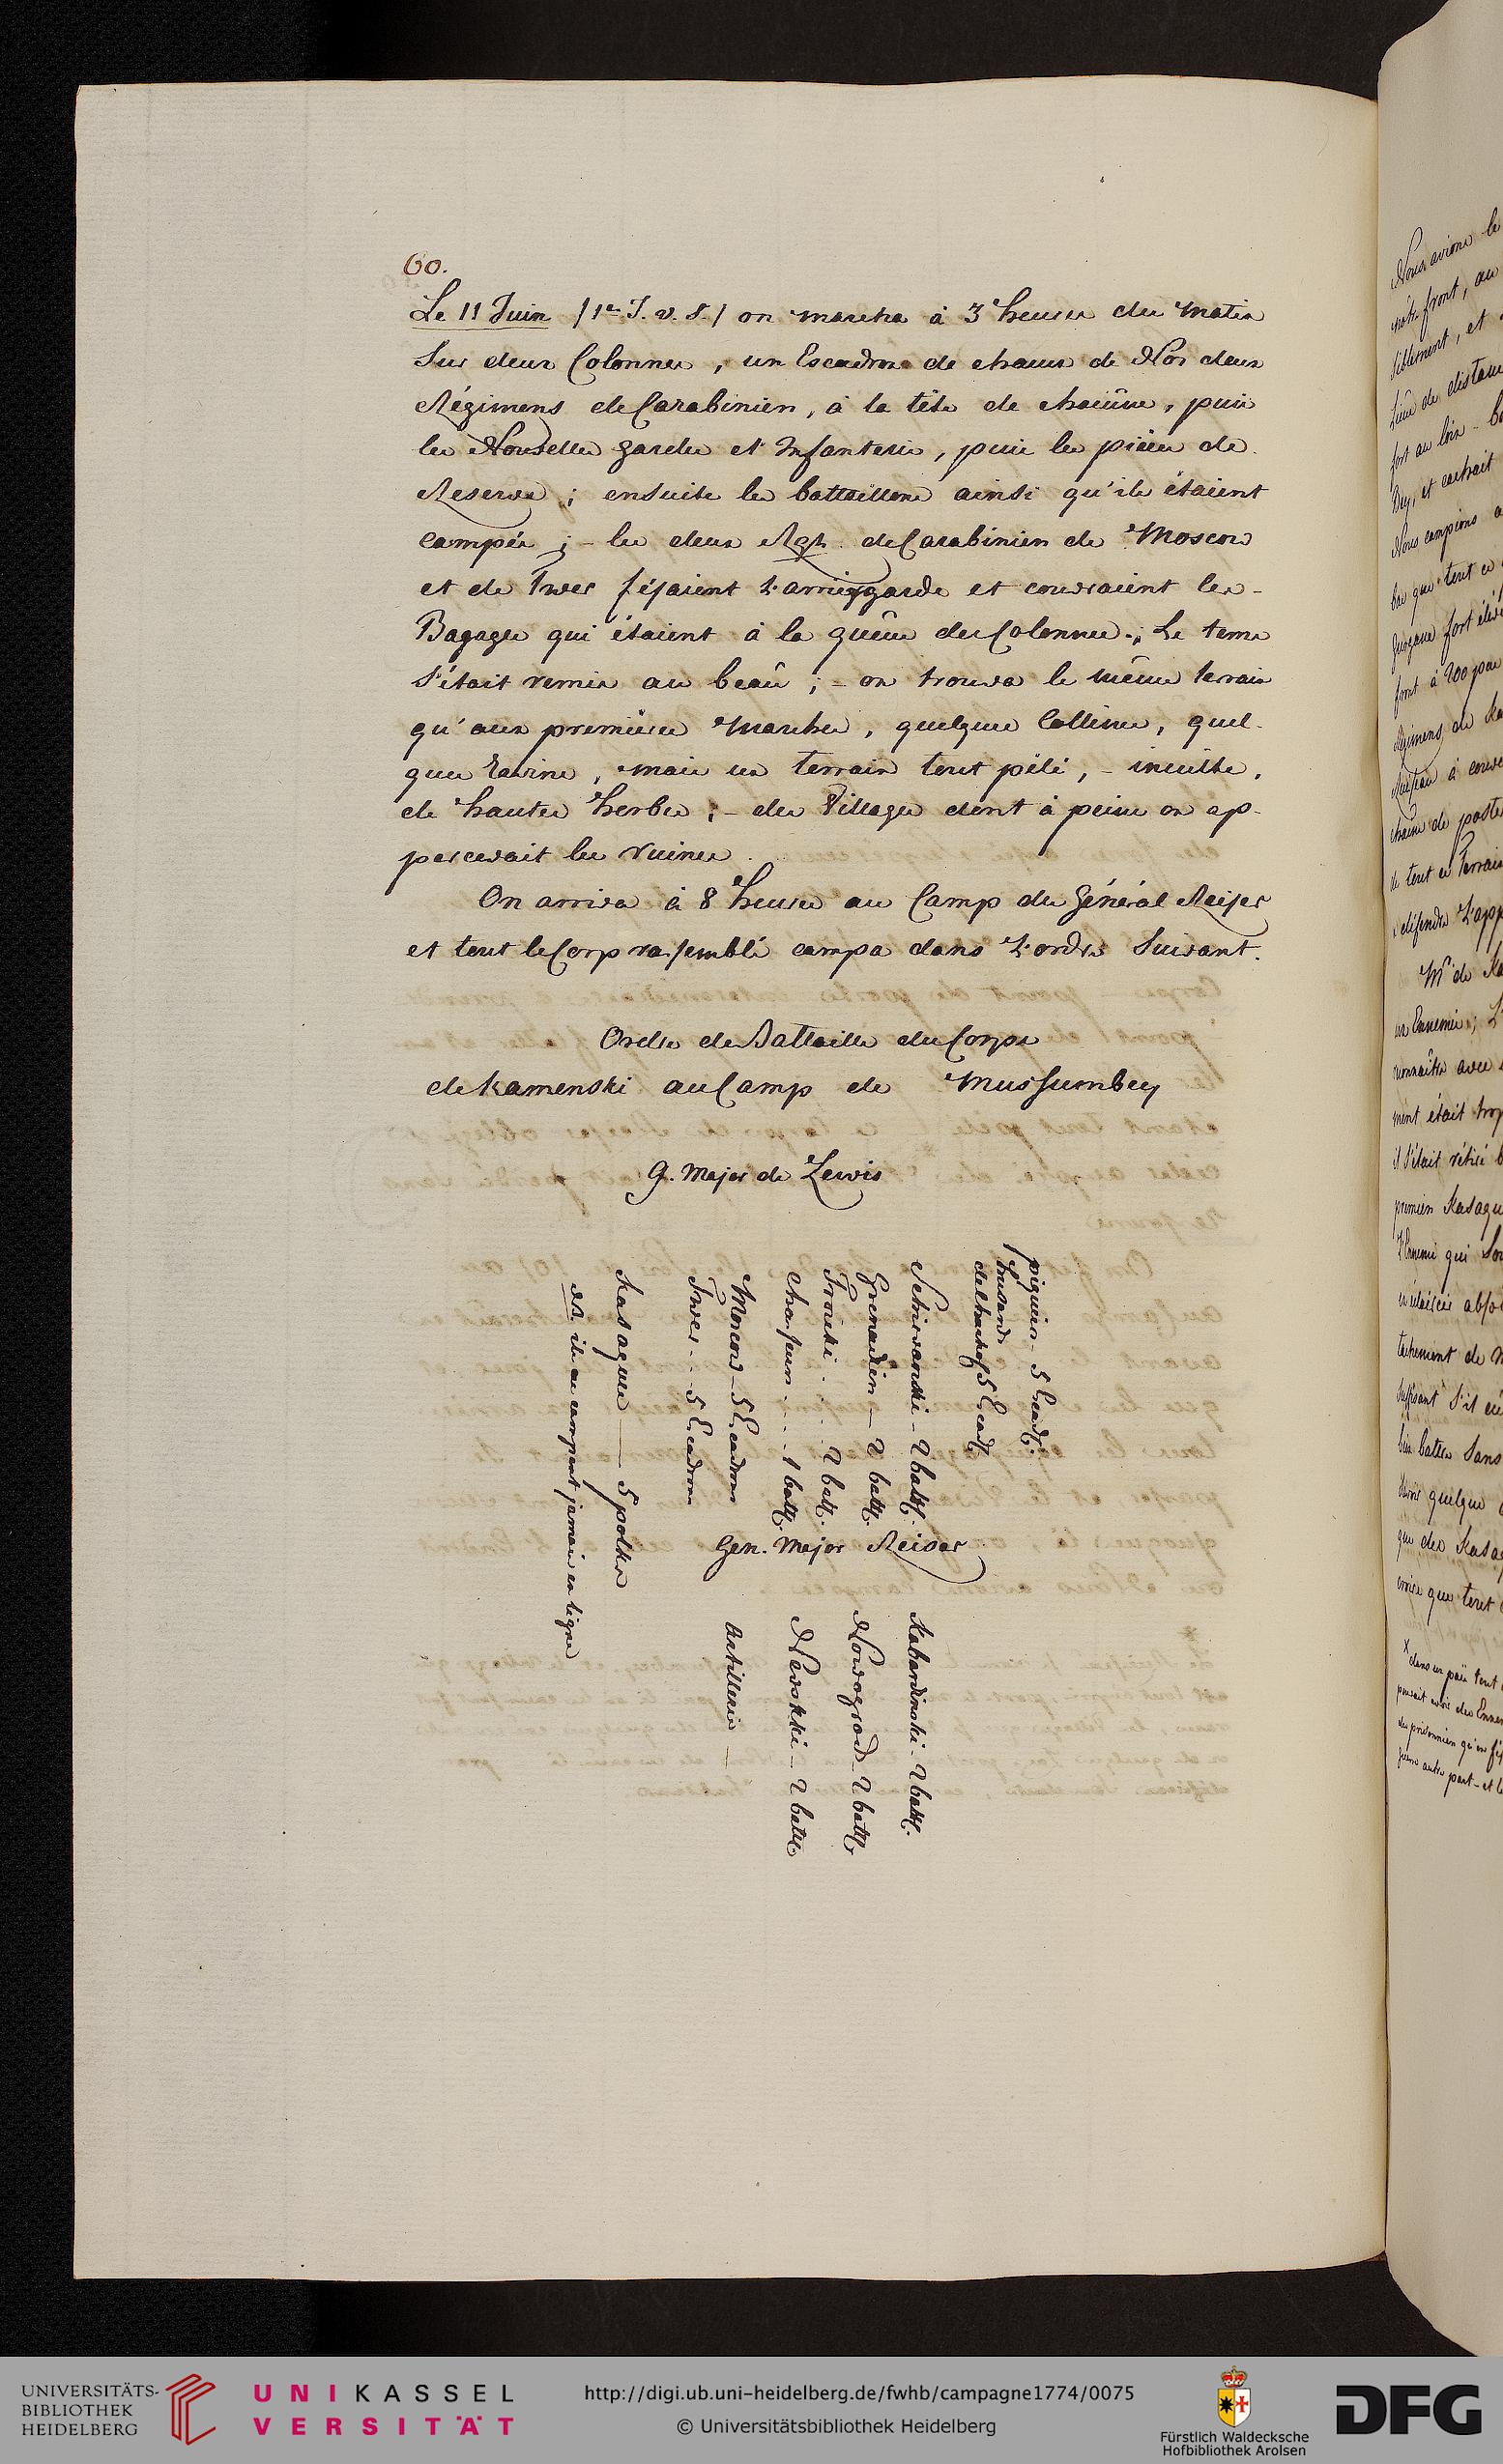 60.
Le 11 Juin /1er J. v. S./ on marcha à 3 heures du matin
Sur deux Colonnes, un Escadron de chacun de Nos deux
Régimens de Carabiniers, à la tête de chacune, puis
les Nouvelles gardes et Infanterie, puis les pièces de
Reserve; ensuite les battaillons ainsi qu'ils étaient
campés; - les deux Rgts. de Carabiniers de Moscow
et de Twer féjaient L'arrieregarde et couvraient les
Bagages qui étaient à la queüe des Colonnes.; Le tems
S'était remis au beau; - on trouva le même terrain
qu'aux premières Marches, quelques Collines, quel-
ques ravins, mais un terrain tout pélé, - inculte,
de hautes herbes; - des Villages dont à peine on ap-
percevait les ruines.
On arriva à 8 heures au Camp du Général Reiser
et tout le Corp rassemblé campa dans L'ordre Suivant.
Ordre de Battaille du Corps
de Kamenski au Camp de Mussumbey
G. Major de Lewis
piquiers - 5 Escadr.
husards
de 5 Escadr.
Schirvanski - 2 batt.
Grenadiers - 2 batt.
Troiski . . . 2 batt.
Chasseurs . . . 1 batt.
Moscow - 5 Escadrons
Twer . . . 5 Escadrons
Kasaques — 5 polks
ils ne campent jamais en ligne
Gen. Major Reiser
Kabardinski - 2 batt.
Nowogrod - 2 batt.
Newski - 2 batt.
Artillerie —
Nous avions le
nôtre front, au
siblement, et
Lieüe de distanc
fort au loin -
Bey, et cachait
Nous campions a
bas que tout ce
fort
font à 200 pas
Régimens de Ka
à couv
chaine de poste
de tout ce terrain
défendre L'app
Mr de Ka
un Ennemie; L'
connaître avec
ment était trop
il S'était rétiré
premiers Kasaqu
L'Ennemi qui
tachement de
Suffisant S'il
bien battre Sans
quelque
que des Kasa
que tout
dans un païs tout
pouvait avoir des Ennem
des prisonniers qu'on
autre part - et
UNIVERSITÄTS-
BIBLIOTHEK
HEIDELBERG
UNIKASSEL
VERSITÄT
http://digi.ub.uni-heidelberg.de/fwhb/campagne1774/0075
© Universitätsbibliothek Heidelberg
Fürstlich Waldecksche
Hofbibliothek Arolsen
DFG